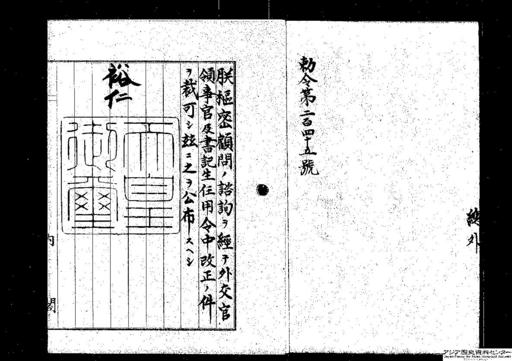 勅令第二百四十五號
総外
朕樞密顧問ノ諮詢ヲ經テ外交官
領事官及書記生任用令中改正ノ件
ヲ裁可シ玆ニ之ヲ公布スヘシ
裕仁
天皇
御璽
内閣
アジア歴史資料センター